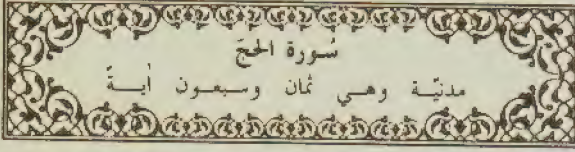 سُورة الحجّ
مدنيّة وهي ثمان وسبعون أية